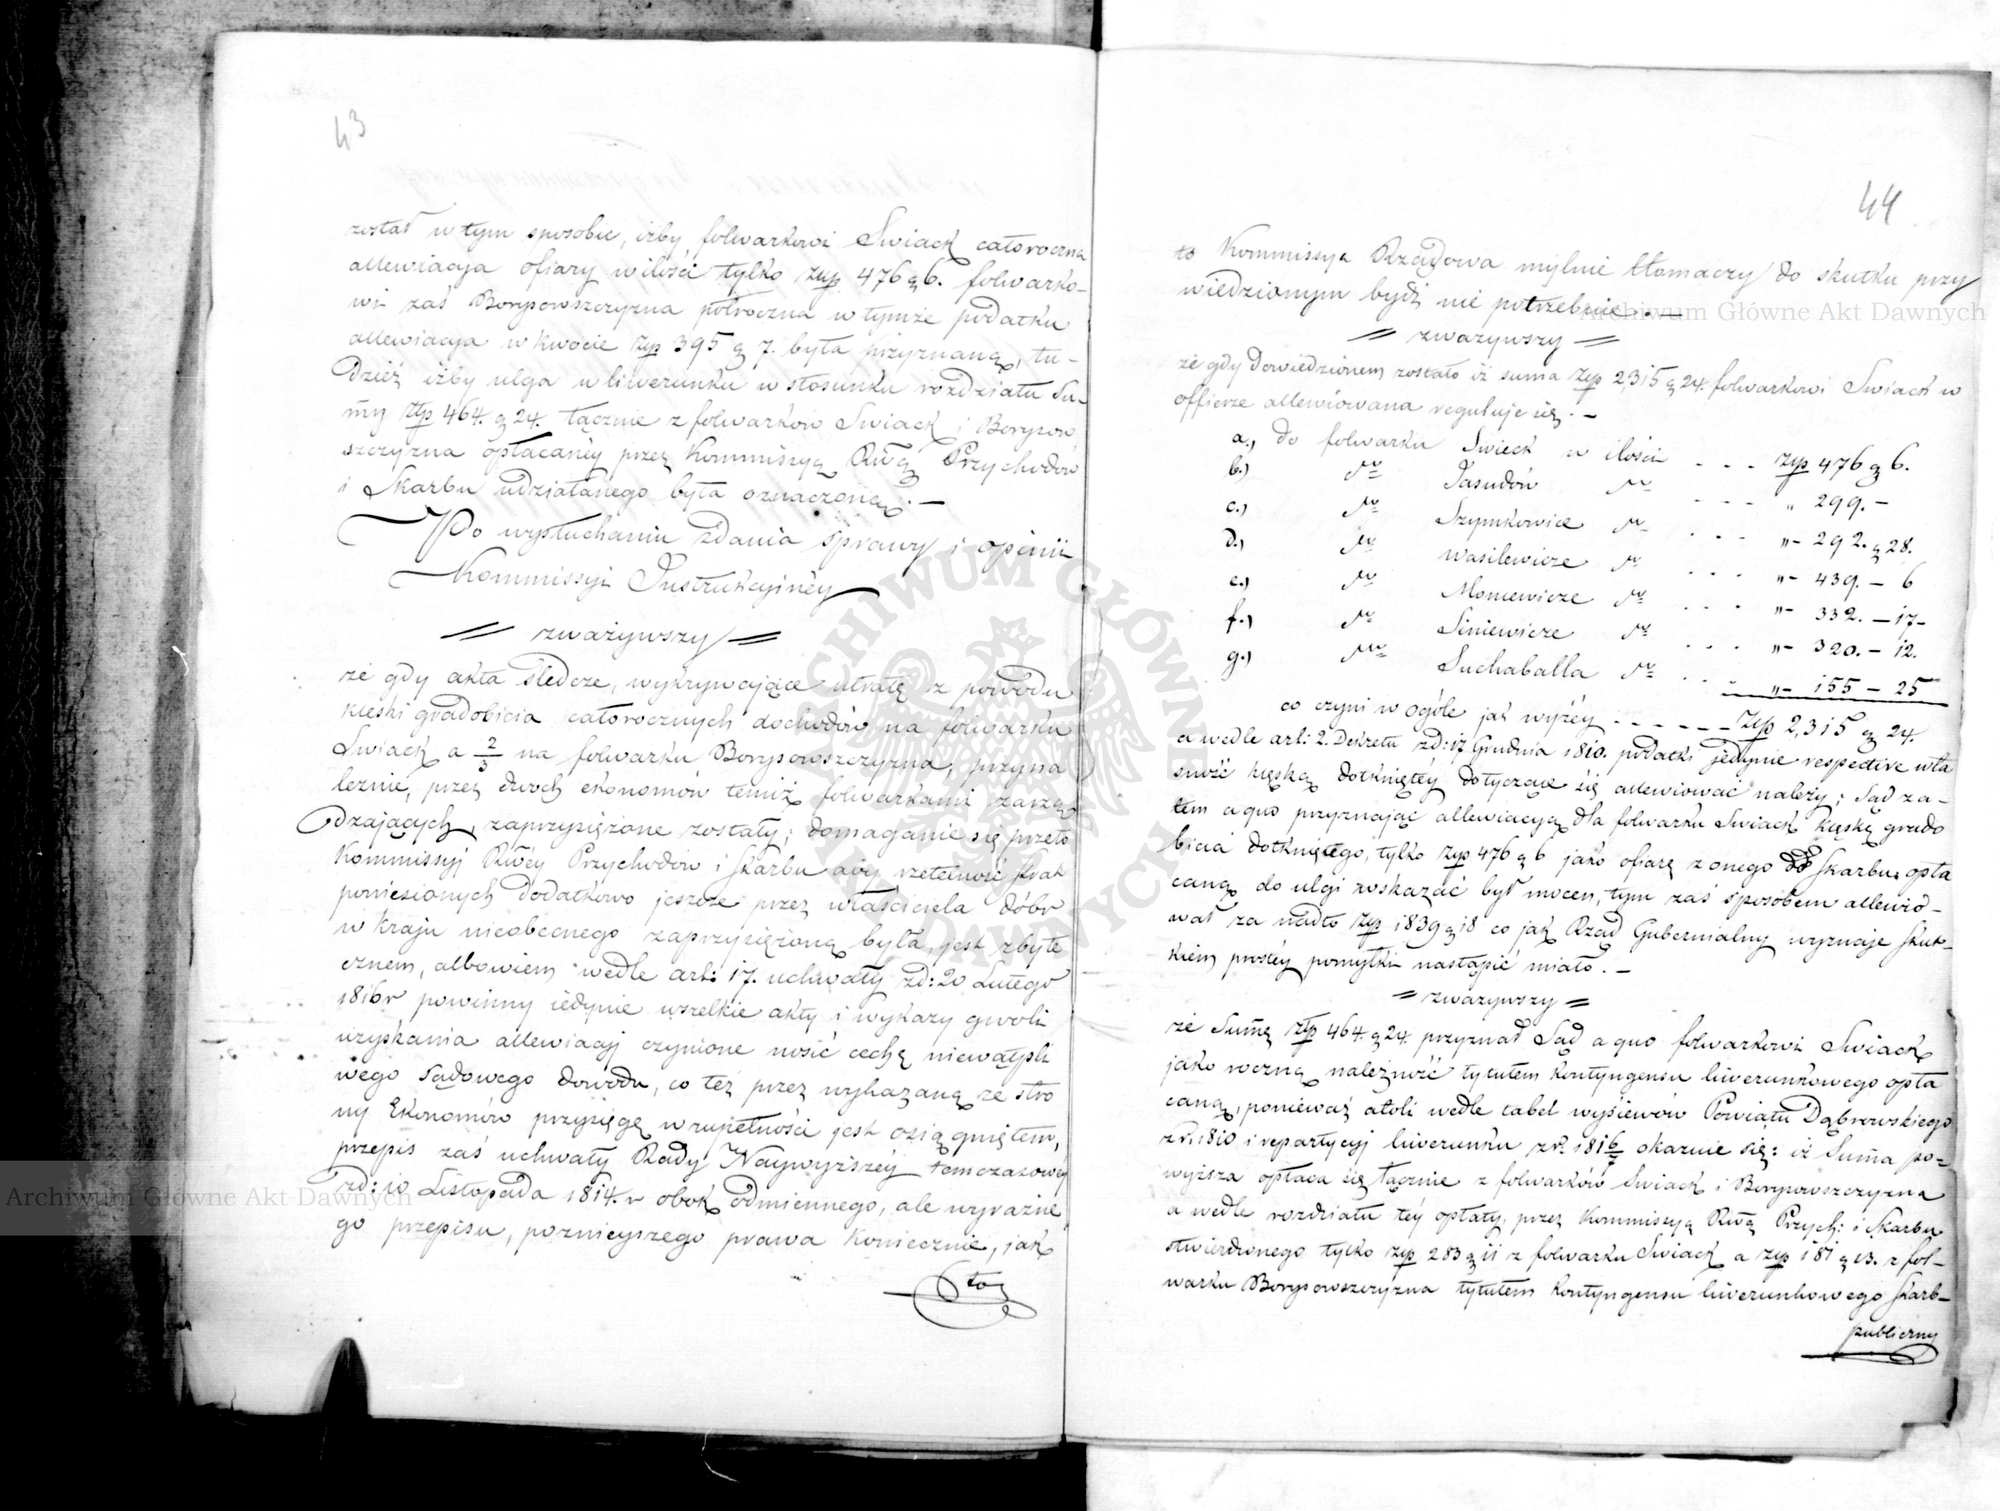 43
został w tym sposobie, iżby folwarkowi Swiack całoroczna
allewiacya ofiary w ilości tylko Złp 476 g 6. folwarko-
wi zaś Borysowszczyzna półroczna w tymże podatku
allewiacya w kwocie Złp 395 g 7. była przyznaną, tu-
dzież iżby ulga w liwerunku w stosunku rozdziału Su-
my Złp 464. g 24. łącznie z folwarków Swiack i Borysow
szczyzna opłacanéy przez Kommissyą Rwą Przychodów
i Skarbu udziałanego była oznaczoną. —
Po wysłuchaniu zdania sprawy i opinii
Kommissyi Instrukcyinéy
= zważywszy =
że gdy akta śledcze, wykrywające utratę z powodu
klęski gradobicia całorocznych dochodów na folwarku
Swiack a 2/3 na folwarku Borysowszczyzna, przyna
leżnie, przez dwóch ekonomów temiż folwarkami zarzą
dzających, zaprzysiężone zostały; domaganie się przeto
Kommissyi Rwéy Przychodów i Skarbu aby rzetelność strat
poniesionych dodatkowo jeszcze przez właściciela dóbr
w kraju nieobecnego zaprzysiężoną była, jest zbyte
cznem, albowiem wedle art: 17. uchwały zd: 20 Lutego
1816 r powinny iedynie wszelkie akty i wykazy gwoli
uzyskania allewiacyi czynione nosić cechę niewątpli
wego sądowego dowodu, co też przez wykazaną ze stro
ny Ekonomów przysięgę w zupełności jest osiągniętem,
przepis zaś uchwały Rady Naywyższéy tymczasowéy
zd: 10 Listopada 1814. r obok odmiennego, ale wyraźne
go przepisu, poznieyszego prawa koniecznie, jak
to
44
to Kommissya Rządowa mylnie tłomaczy do skutku przy
wiedzionym bydź nie potrzebuie. —
= zważywszy =
że gdy dowiedzionem zostało iż suma Złp 2,315 g 24. folwarkowi Swiack w
offierze allewiowana reguluje się. —
a., do folwarku Swieck w ilości . . . Złp 476 g 6.
b.) dto Jasudów dto . . . „ 299. —
c.) dto Szymkowice dto . . . „ — 292. g 28.
d.) dto Wasilewicze dto . . . „ — 439. — 6
e.) dto Moniewicze dto . . . „ — 332. — 17 —
f.) dto Siniewicze dto . . . „ — 320. — 12.
g.) dto Suchaballa dto . . . „ — 155 — 25
co czyni w ogóle jak wyżéy . . . Złp 2,315 g 24.
a wedle art: 2. Dekretu zd: 17 Grudnia 1810. podatki jedynie respective wła
sność klęską dotkniętéy dotyczące się allewiować należy; Sąd za-
tem a quo przyznając allewiacyą dla folwarku Swiack klęską grado
bicia dotkniętego, tylko Złp 476 g 6 jako ofiarę z onego do Skarbu opła
caną do ulgi wskazać był mocen, tym zaś sposobem allewio-
wał za nadto Złp 1839 g 18 co jak Rząd Gubernialny wyznaje skut-
kiem prostéy pomyłki nastąpić miało. —
= zważywszy =
że Sumę Złp 464. g 24. przyznał Sąd a quo folwarkowi Swiack
jako roczną należność tytułem kontyngensu liwerunkowego opła
caną, ponieważ atoli wedle tabel wysiewów Powiatu Dąbrowskiego
z r. 1810 i repartycyi liwerunku z r. 1816/7 okazuie się: iż Suma po-
wyższa opłaca się łącznie z folwarków Swiack i Borysowszczyzna
a wedle rozdziału téy opłaty, przez Kommissyą Rwą Przych: i Skarbu
stwierdzonego tylko Złp 283 g 11 z folwarku Swiack a Złp 181 g 13. z fol-
warku Borysowszczyzna tytułem kontyngensu liwerunkowego Skarb-
publiczny
Archiwum Główne Akt Dawnych
Archiwum Główne Akt Dawnych
ARCHIWUM GŁÓWNE AKT DAWNYCH